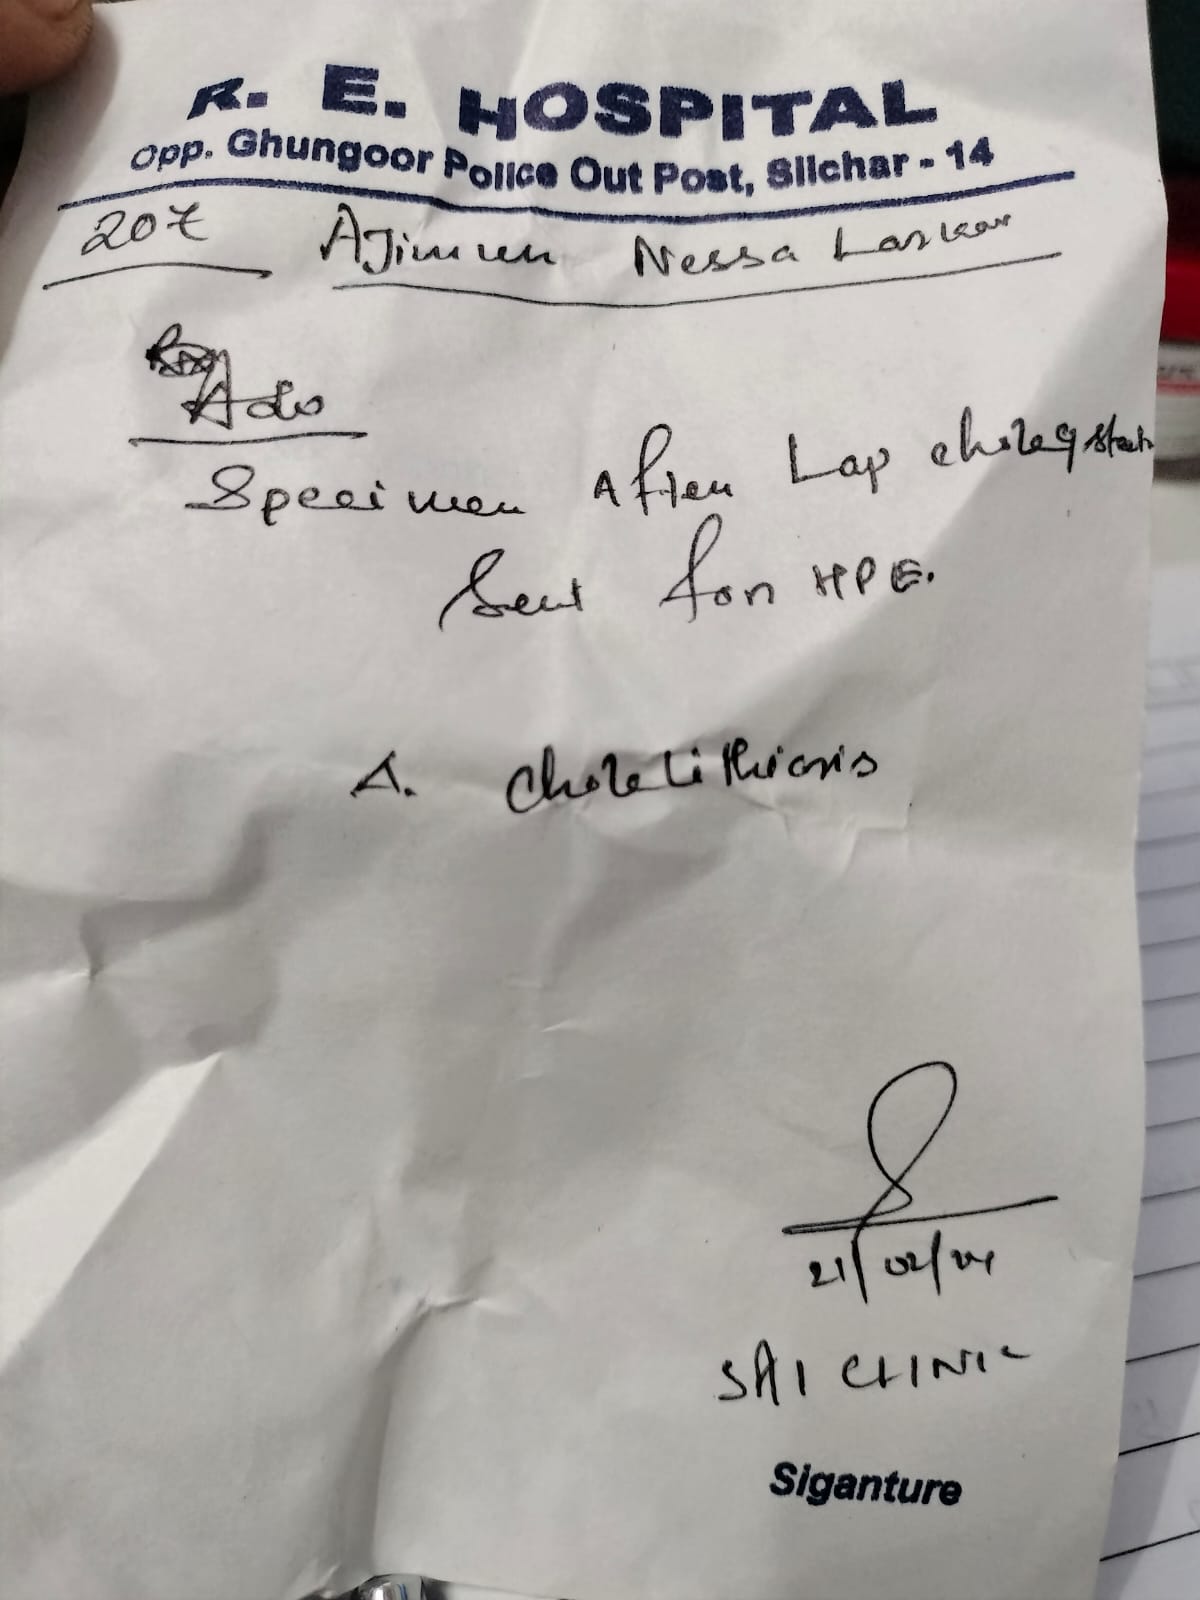 R. E. HOSPITAL
Opp. Ghungoor Police Out Post, Silchar - 14
207 Ajimun Nessa Laskar
Adv
Specimen After Lap cholecystect
Sent for HPE.
Δ. Cholelithiasis
21/02/24
SAI CLINIC
Siganture